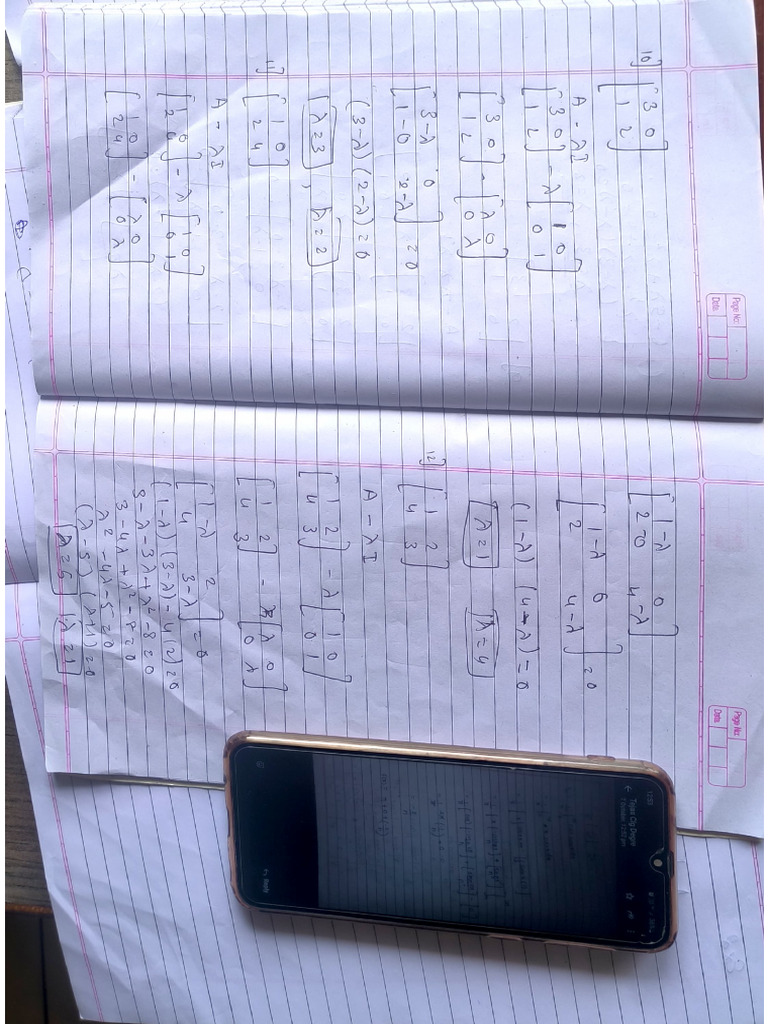 Page No:
Date:
10] [3 0
1 2]
A - λI
[3 0
1 2] - λ [1 0
0 1]
[3 0
1 2] - [λ 0
0 λ]
[3-λ 0
1-0 2-λ] = 0
(3-λ) (2-λ) = 0
λ=3 , λ=2
11] [1 0
2 4]
A - λI
[1 0
2 4] - λ [1 0
0 1]
[1 0
2 4] - [λ 0
0 λ]
Page No:
Date:
[1-λ 0
2-0 4-λ]
[1-λ 0
2 4-λ] = 0
(1-λ) (4-λ) = 0
λ=1 λ=4
12] [1 2
4 3]
A - λI
[1 2
4 3] - λ [1 0
0 1]
[1 2
4 3] - [λ 0
0 λ]
[1-λ 2
4 3-λ] = 0
(1-λ) (3-λ) - 4(2) = 0
3-λ-3λ+λ²-8=0
3-4λ+λ²-8=0
λ²-4λ-5=0
(λ-5) (λ+1)=0
λ=5 λ=1
12:53
Tejas Clg Dogie
Reply